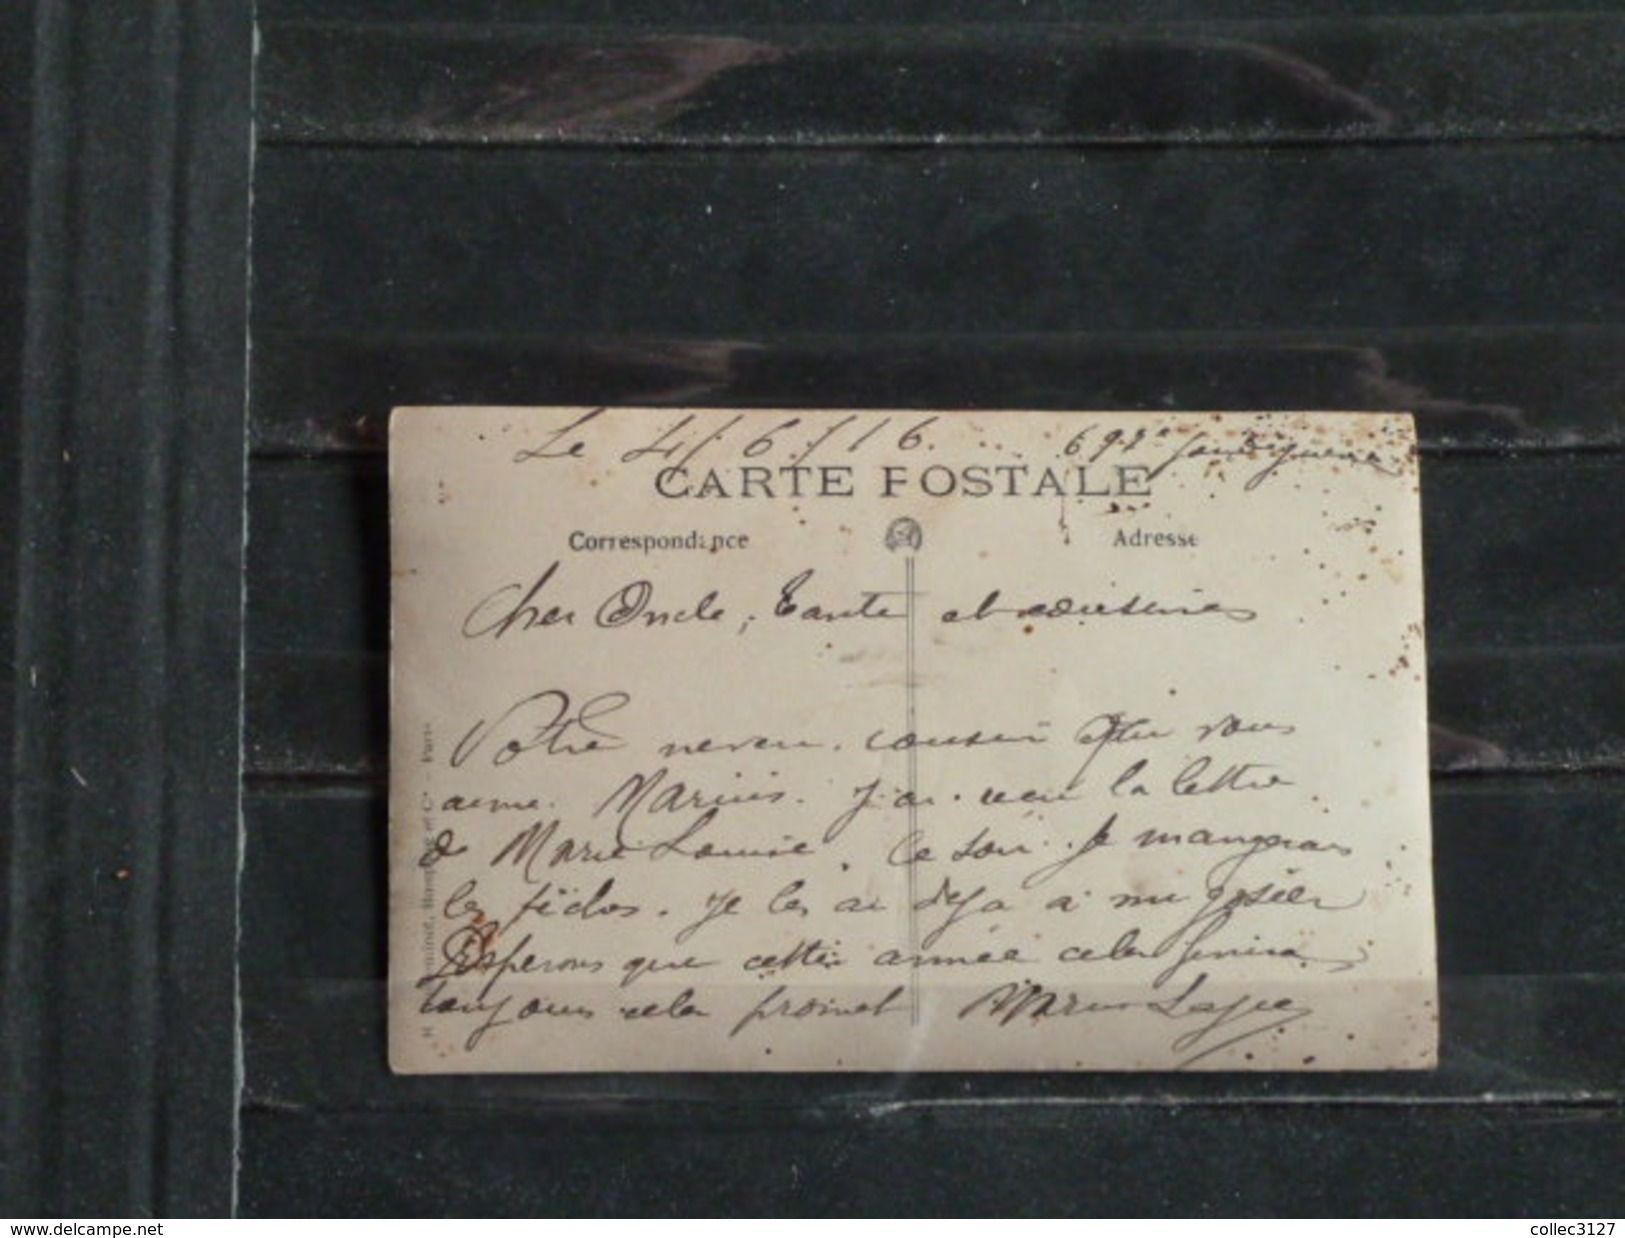 Le 4/6/16. 692e jour de guerre
CARTE POSTALE
Correspondance
Adresse
Cher Oncle, Tante et cousines
Votre neveu. cousin que vous
aime. Marius. J'ai. la lettre
de Marie Louise. Ce soir. je mangerais
les. Je les ai deja a mu gosier
Esperons que cette année cela finira
toujours cela promet Marius
et Cie - Paris
www.delcampe.net
collec3127